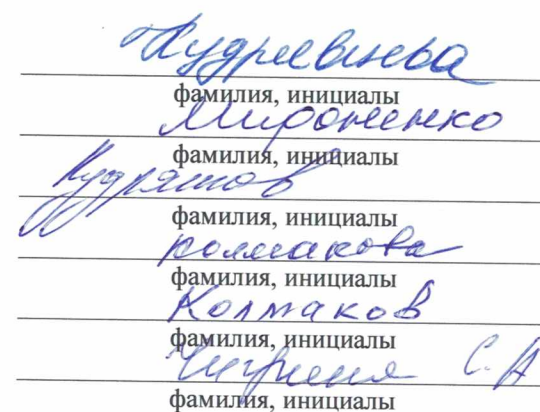 фамилия, инициалы
Мироненко
фамилия, инициалы
Кудряшов
фамилия, инициалы
Колмакова
фамилия, инициалы
Колмаков
фамилия, инициалы
С.А
фамилия, инициалы